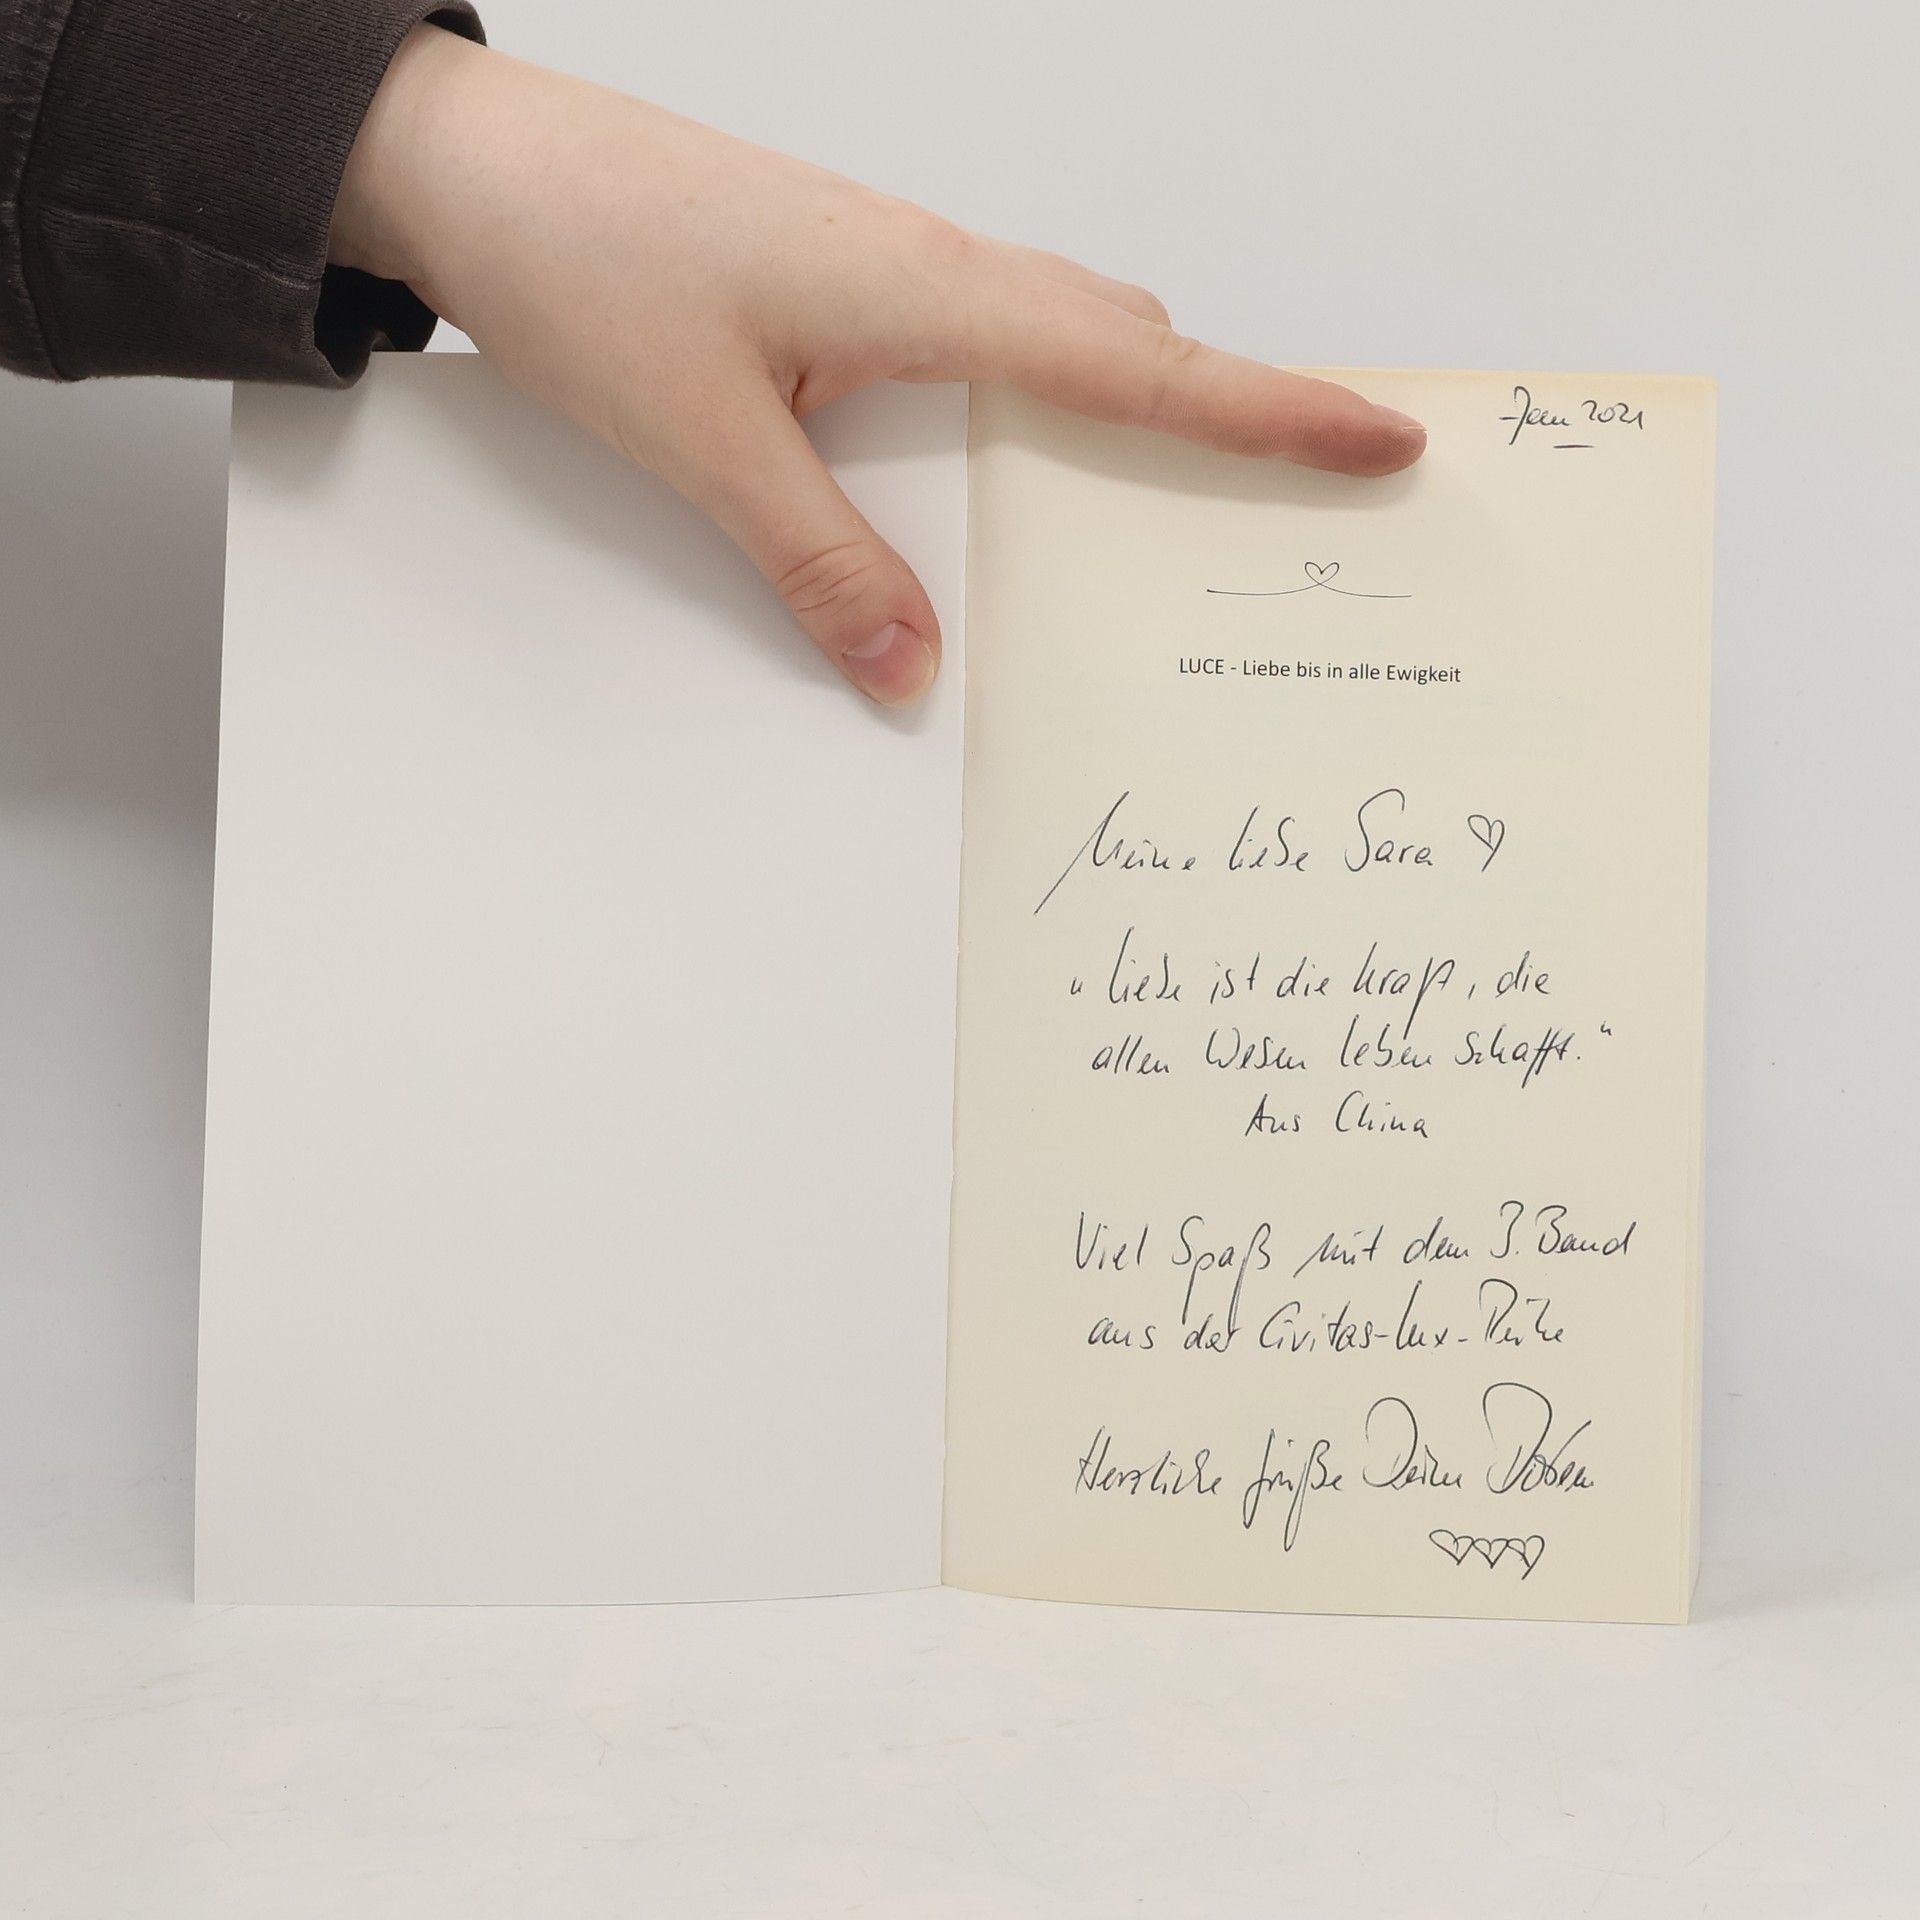 Jan 2021
LUCE - Liebe bis in alle Ewigkeit
Meine liebe Sara
„Liebe ist die Kraft, die
allen Wesen Leben schafft.“
Aus China
Viel Spaß mit dem 3. Band
aus der Civitas-Lux-Reihe
Herzliche Grüße Deine